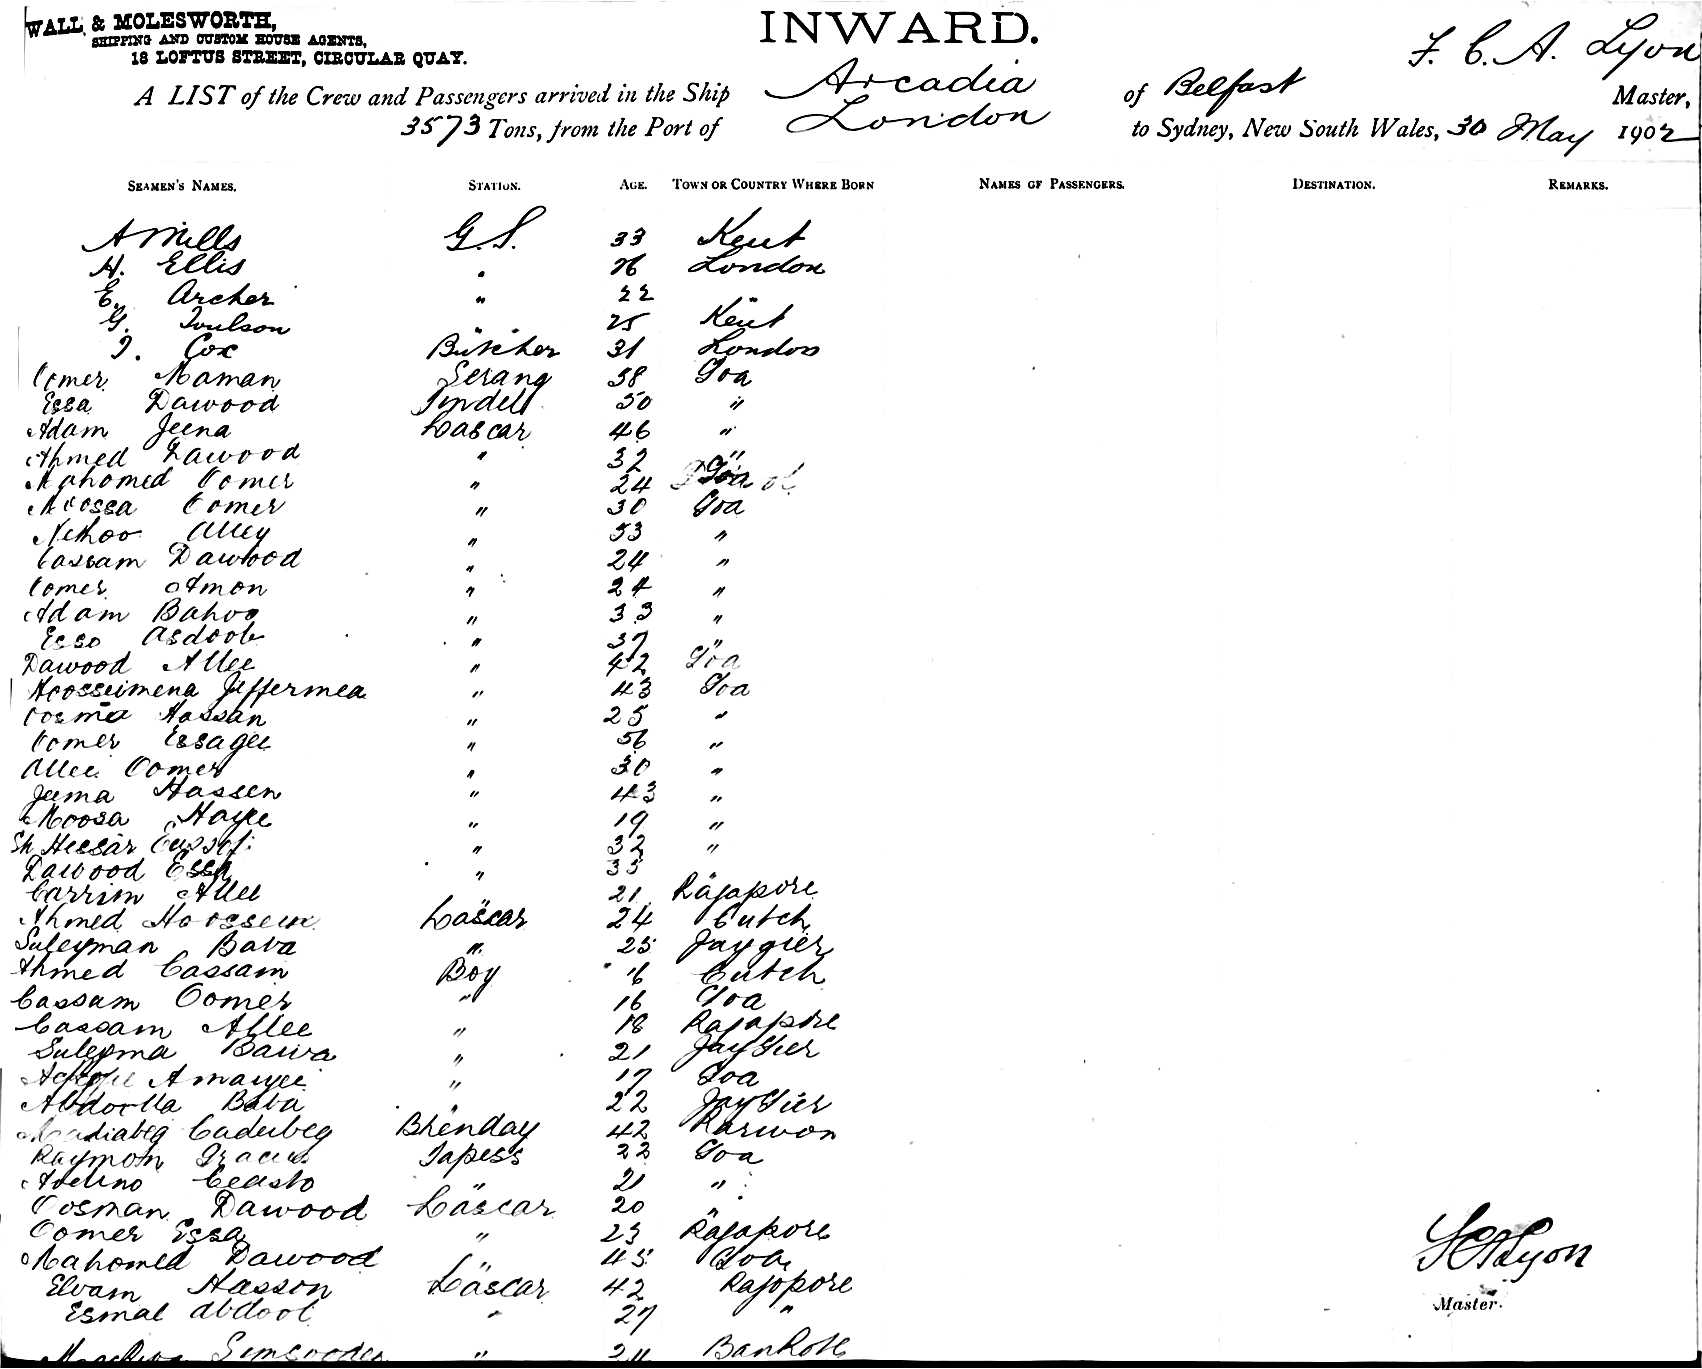 WALL & MOLESWORTH,
SHIPPING AND CUSTOM HOUSE AGENTS,
18 LOFTUS STREET, CIRCULAR QUAY.
INWARD.
F. C. A. Lyon
A LIST of the Crew and Passengers arrived in the Ship Arcadia of Belfast Master,
3573 Tons, from the Port of London to Sydney, New South Wales, 30 May 1902
SEAMEN'S NAMES. STATION. AGE. TOWN OR COUNTRY WHERE BORN NAMES OF PASSENGERS. DESTINATION. REMARKS.
A Mills G.S. 33 Kent
H. Ellis " 26 London
E. Archer " 22 "
G. Toulson " 25 Kent
J. Cox Butcher 31 London
Oomer Maman Serang 38 Goa
Essa Dawood Tindell 50 "
Adam Jeena Lascar 46 "
Ahmed Dawood " 32 "
Mahomed Oomer " 24 Goa
Moossa Oomer " 30 Goa
Nethoo Alley " 53 "
Cassam Dawood " 24 "
Oomer Amon " 24 "
Adam Bahoo " 33 "
Esso Asdoob " 37 "
Dawood Allee " 42 Goa
Hoosseimena Jeffermea " 43 Goa
Oosma Hassan " 25 "
Oomer Essagee " 56 "
Allee Oomer " 30 "
Jeema Hassen " 43 "
Moosa Hayee " 19 "
Sh Hessar " 32 "
Dawood Essa " 33
Carrim Allee " 21 Rajapore
Ahmed Hoossein Lascar 24 Cutch
Suleyman Bava " 25 Jaygier
Ahmed Cassam Boy 16 Cutch
Cassam Oomer " 16 Goa
Cassam Allee " 18 Rajapore
Suleyma Bawa " 21 Jaygier
Amayee " 17 Goa
Abdoolla Bava " 22 Jaygier
Caderbeg Bhenday 42 Karwon
Raymom Gracias Tapess 22 Goa
Avelino " 21 "
Oosman Dawood Lascar 20 "
Oomer Essa " 23 Rajapore
Mahomed Dawood " 45 Goa
Elvam Hasson Lascar 42 Rajopore
Esmal Abdool " 27 "
" Bankote
F C A Lyon
Master.